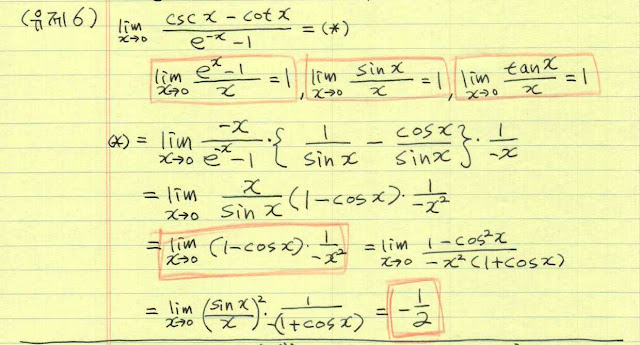 (유제6) lim x→0 (csc x - cot x)/(e^-x - 1) = (*)
lim x→0 (e^x - 1)/x = 1, lim x→0 sin x/x = 1, lim x→0 tan x/x = 1
(*) = lim x→0 -x/(e^-x - 1) · { 1/sin x - cos x/sin x } · 1/-x
= lim x→0 x/sin x (1 - cos x) · 1/-x²
= lim x→0 (1 - cos x) · 1/-x² = lim x→0 (1 - cos²x)/(-x²(1 + cos x))
= lim x→0 (sin x/x)² · 1/-(1 + cos x) = -1/2